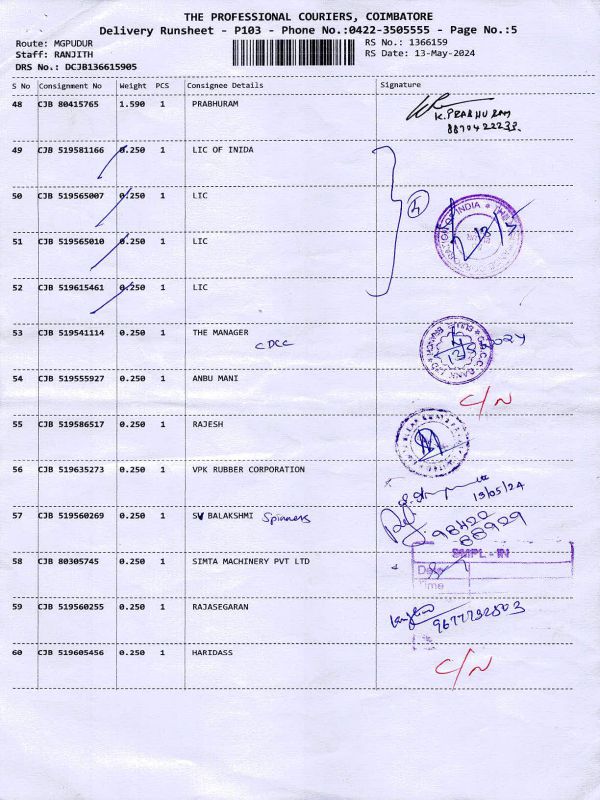 THE PROFESSIONAL COURIERS, COIMBATORE
Delivery Runsheet - P103 - Phone No.:0422-3505555 - Page No.:5
Route: MGPUDUR RS No.: 1366159
Staff: RANJITH RS Date: 13-May-2024
DRS No.: DCJB136615905
S No Consignment No Weight PCS Consignee Details Signature
48 CJB 80415765 1.590 1 PRABHURAM
K. PRABHURAM
49 CJB 519581166 0.250 1 LIC OF INIDA
50 CJB 519565007 0.250 1 LIC
4
51 CJB 519565010 0.250 1 LIC
52 CJB 519615461 0.250 1 LIC
53 CJB 519541114 0.250 1 THE MANAGER
CDCC
54 CJB 519555927 0.250 1 ANBU MANI
C/N
55 CJB 519586517 0.250 1 RAJESH
56 CJB 519635273 0.250 1 VPK RUBBER CORPORATION
13/05/24
57 CJB 519560269 0.250 1 SV BALAKSHMI Spinners
98422
88929
58 CJB 80305745 0.250 1 SIMTA MACHINERY PVT LTD
SMPL - IN
Date
Time
59 CJB 519560255 0.250 1 RAJASEGARAN
60 CJB 519605456 0.250 1 HARIDASS
C/N